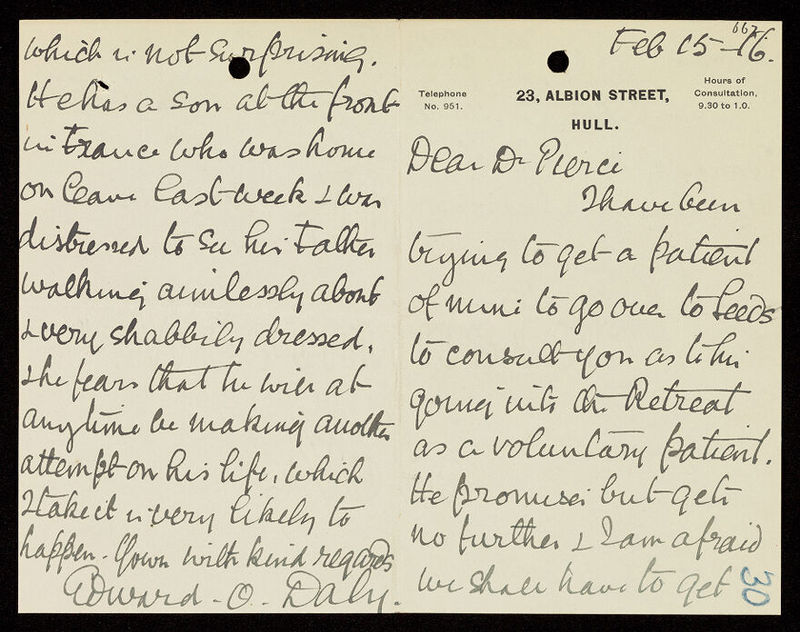 667
Feb 15-16.
Telephone
No. 951.
23, ALBION STREET,
HULL.
Hours of
Consultation,
9.30 to 1.0.
Dear Dr Pierce
I have been
trying to get a patient
of mine to go over to Leeds
to consult you as to his
going into the Retreat
as a voluntary patient.
He promises but gets
no further & I am afraid
we shall have to get
30
which is not surprising.
He has a son at the front
in France who was home
on leave last week & was
distressed to see his Father
walking aimlessly about
& very shabbily dressed,
& he fears that he will at
any time be making another
attempt on his life, which
I take it is very likely to
happen. Yours with kind regards
Edward. O. Daly.